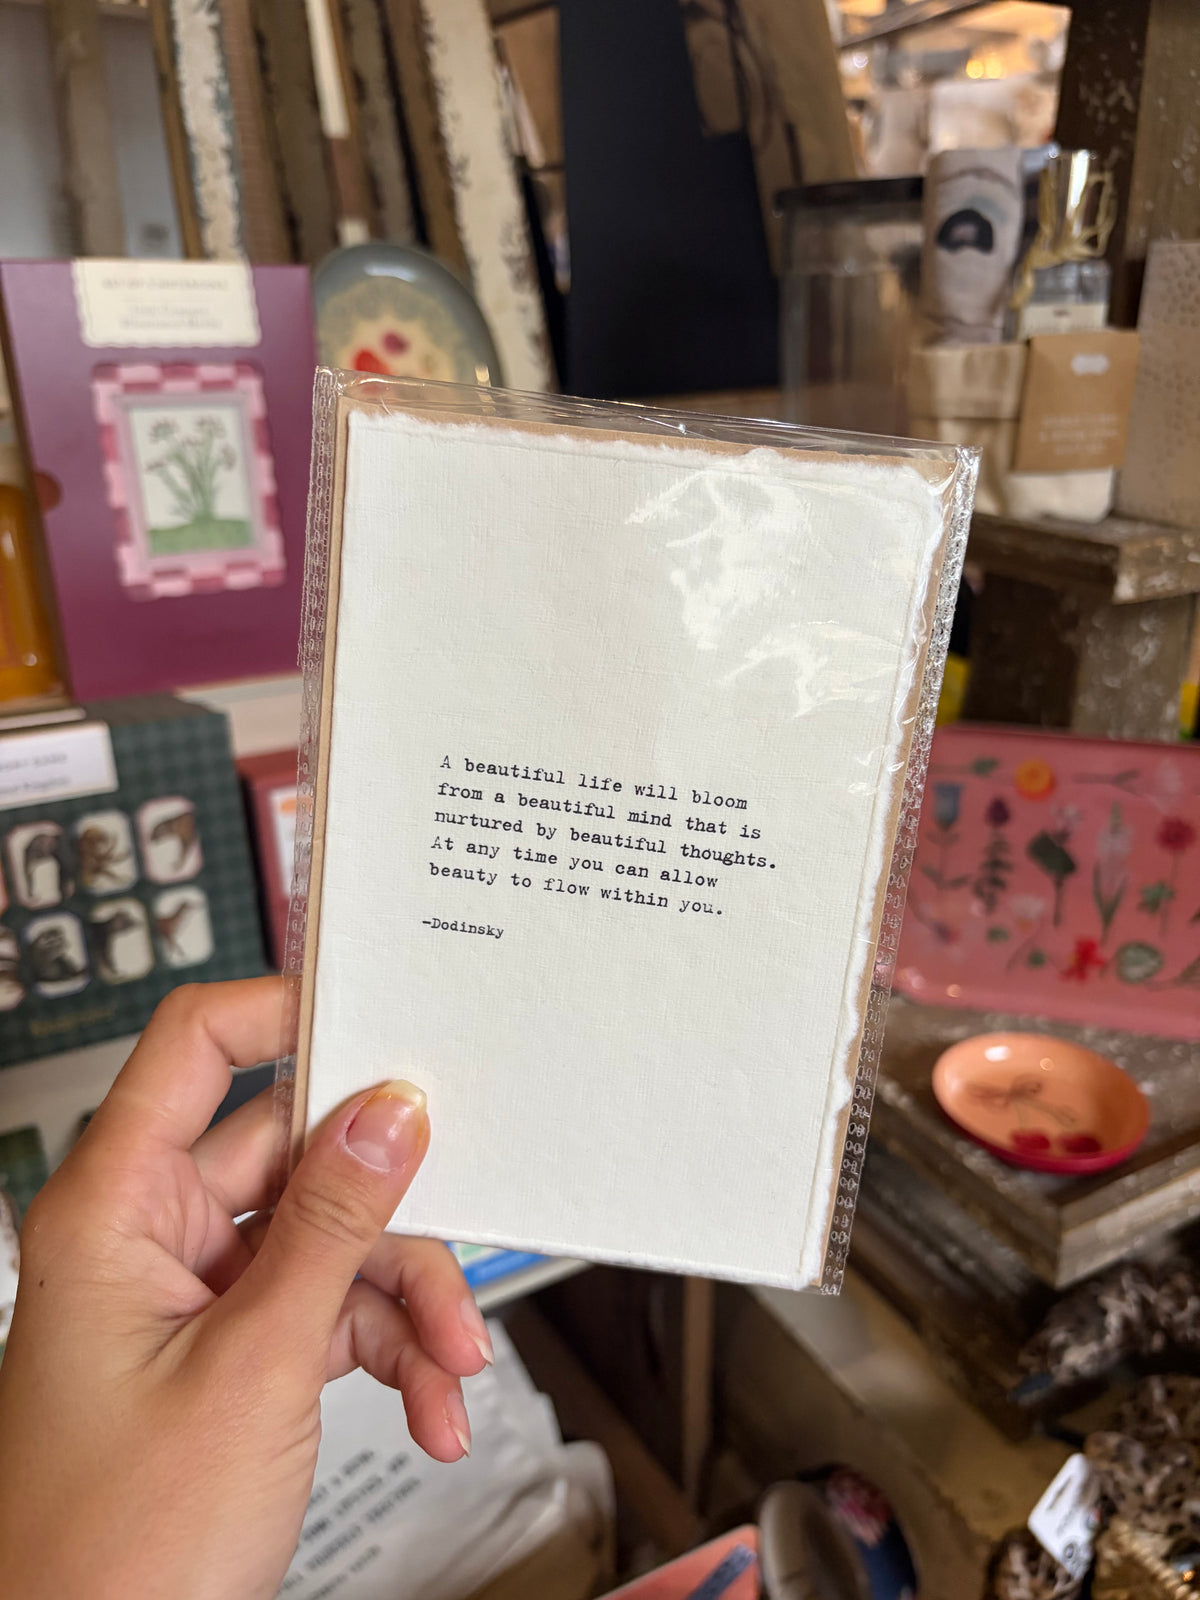 A beautiful life will bloom
from a beautiful mind that is
nurtured by beautiful thoughts.
At any time you can allow
beauty to flow within you.
—Dodinsky